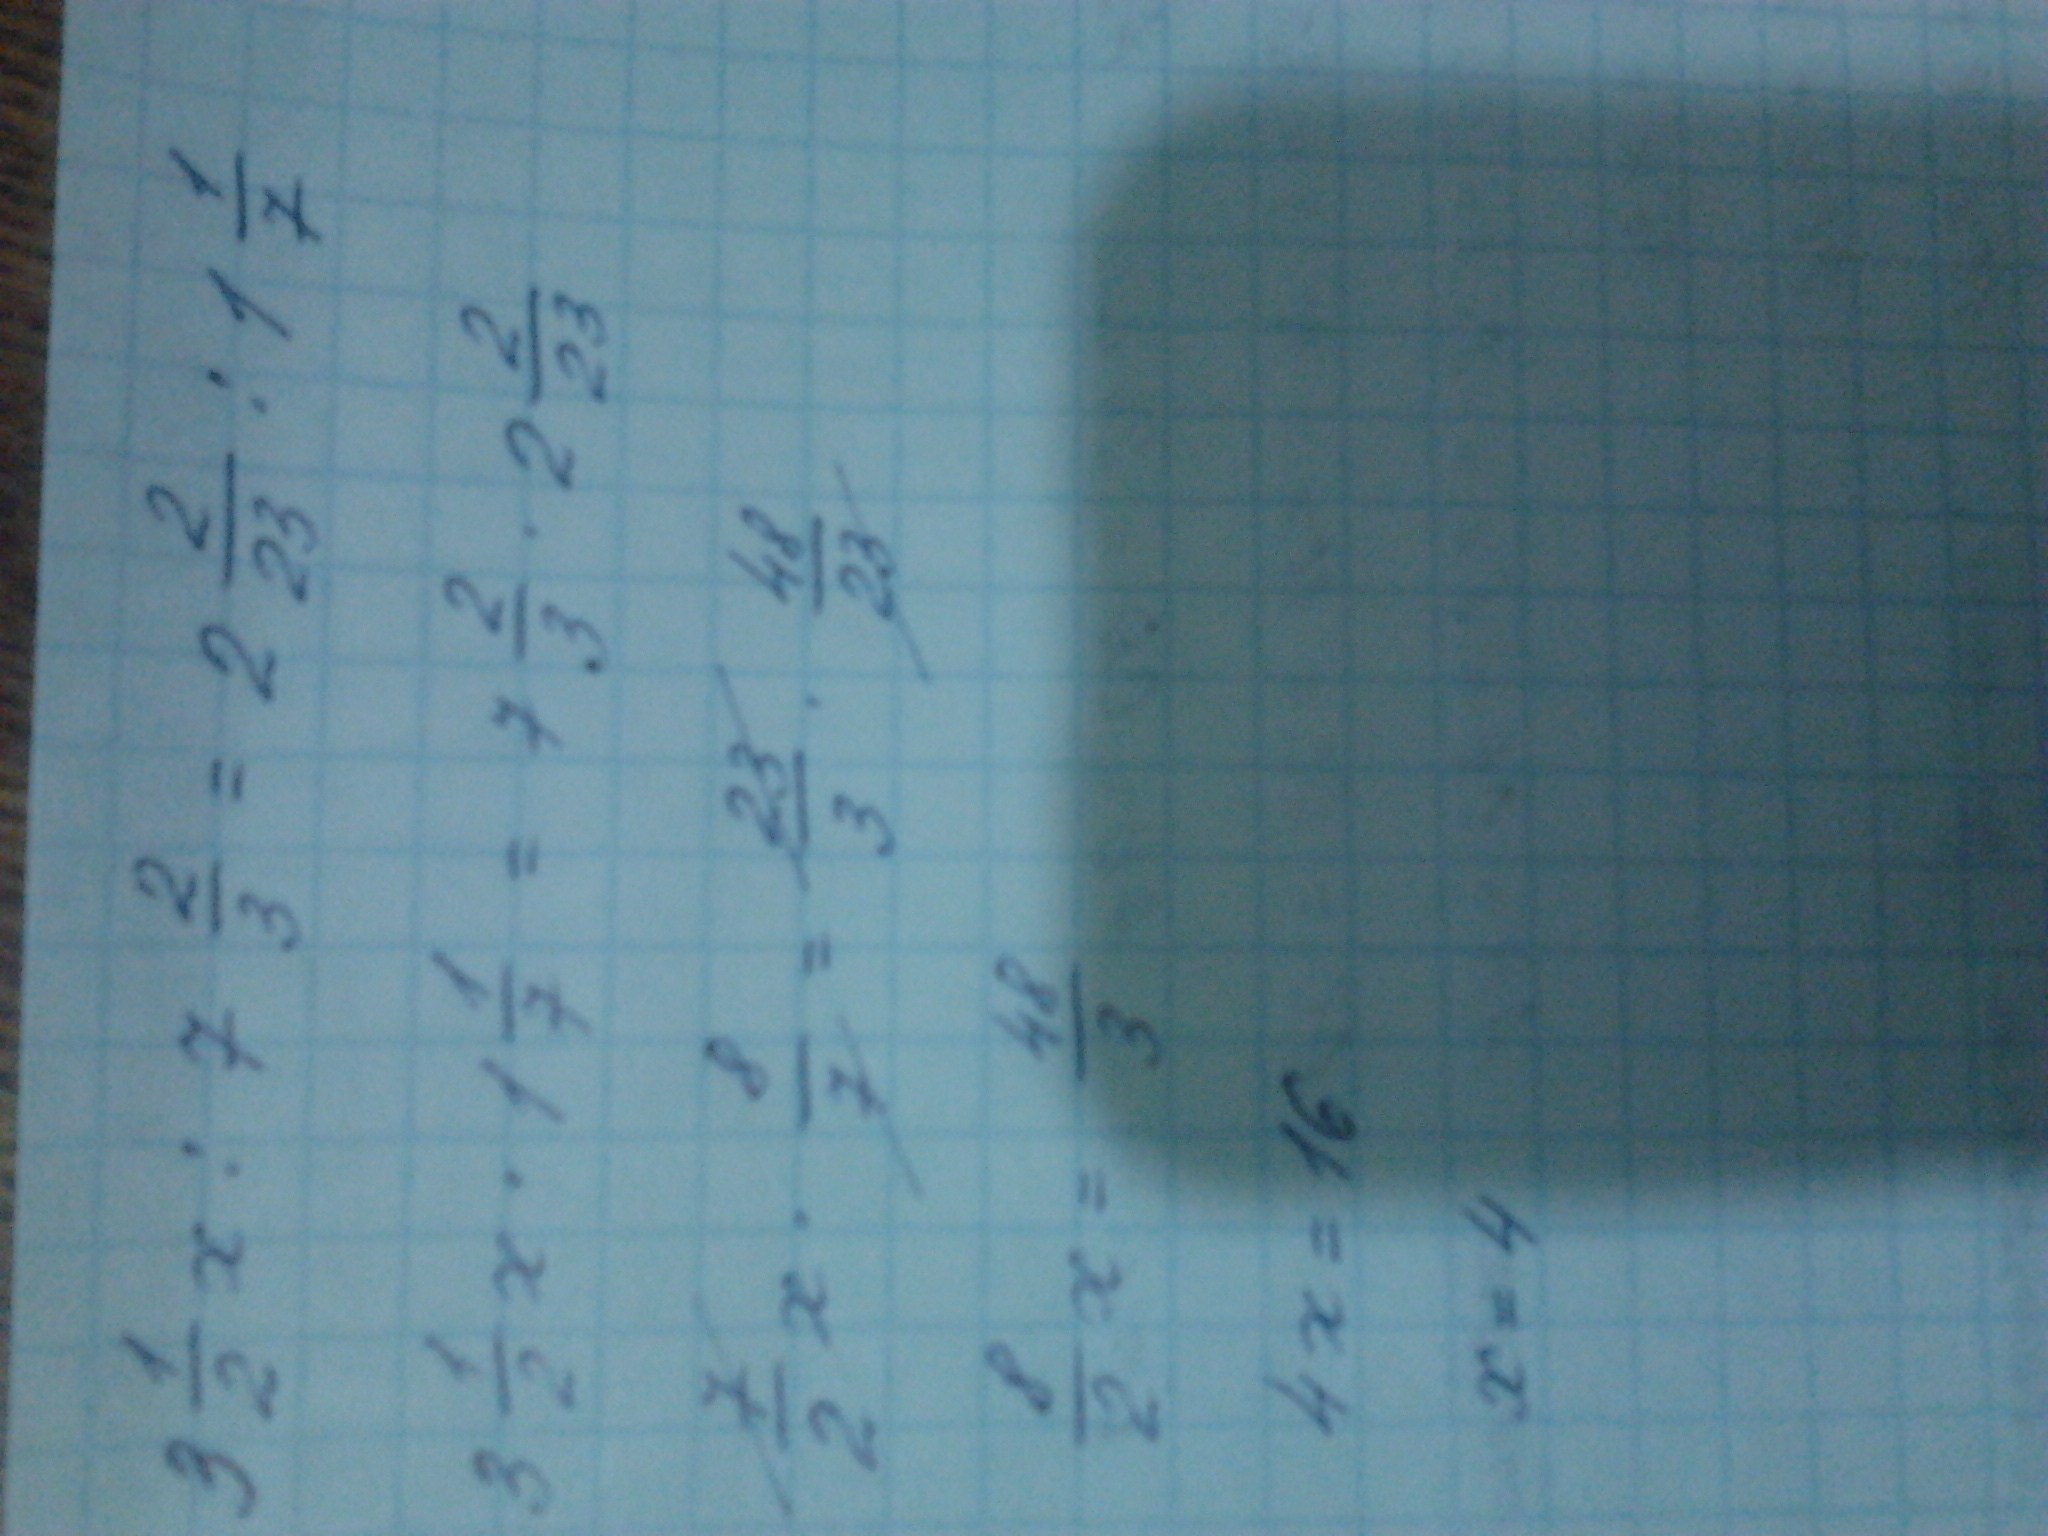 3 1/2 x : 7 2/3 = 2 2/23 : 1 1/7
3 1/2 x · 1 1/7 = 7 2/3 · 2 2/23
7/2 x · 8/7 = 23/3 · 48/23
8/2 x = 48/3
4x = 16
x = 4